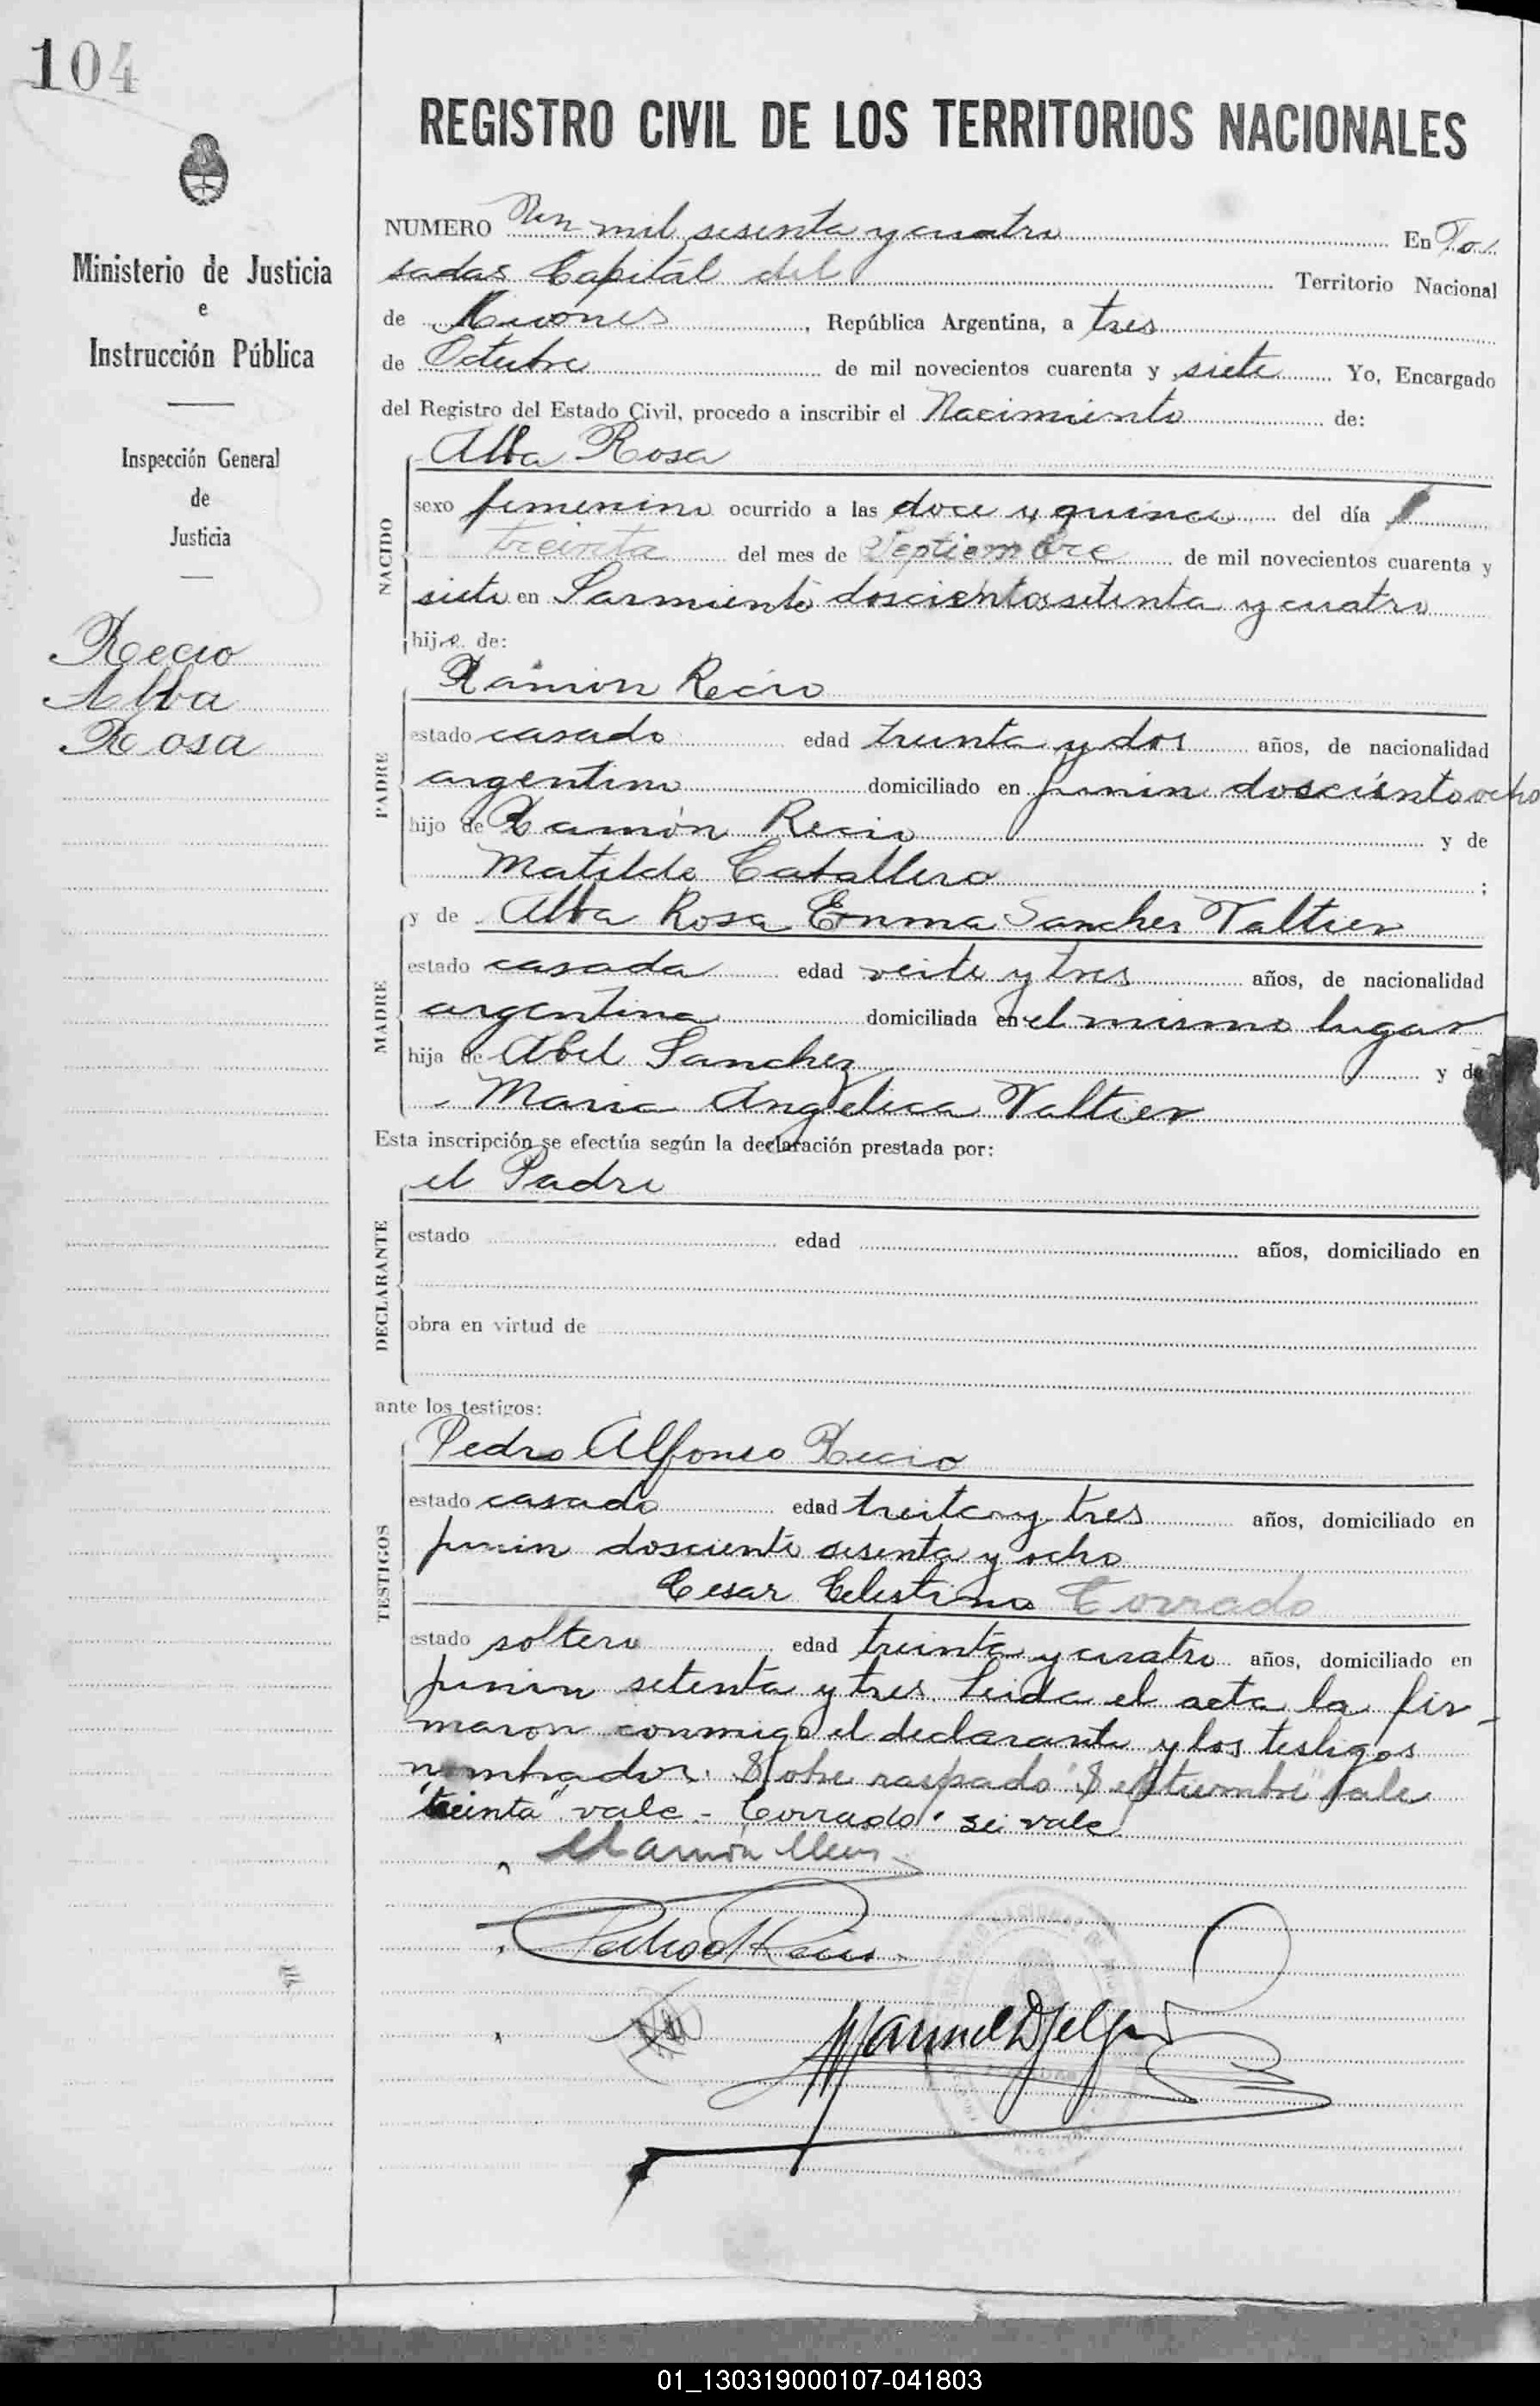 104
REGISTRO CIVIL DE LOS TERRITORIOS NACIONALES
Ministerio de Justicia
e
Instrucción Pública
Inspección General
de
Justicia
Recio
Alba
Rosa
NUMERO Un mil sesenta y cuatro En Po
sadas Capital del Territorio Nacional
de Misiones, República Argentina, a tres
de Octubre de mil novecientos cuarenta y siete Yo, Encargado
del Registro del Estado Civil, procedo a inscribir el Nacimiento de:
Alba Rosa
NACIDO
sexo femenino ocurrido a las doce y quince del día
treinta del mes de Septiembre de mil novecientos cuarenta y
siete en Sarmiento doscientos setenta y cuatro
hija de:
Ramón Recio
PADRE
estado casado edad treinta y dos años, de nacionalidad
argentino domiciliado en junin dosciento ocho
hijo de Ramón Recio y de
Matilde Caballero ;
y de Alba Rosa Emma Sanchez Valtier
MADRE
estado casada edad veite y tres años, de nacionalidad
argentina domiciliada en el mismo lugar
hija de Abel Sanchez y de
Maria Angelica Valtier
Esta inscripción se efectúa según la declaración prestada por:
el Padre
DECLARANTE
estado edad años, domiciliado en
obra en virtud de
ante los testigos:
Pedro Alfonso Recio
TESTIGOS
estado casado edad treita y tres años, domiciliado en
junin dosciento sesenta y ocho
Cesar Celestino Corrado
estado soltero edad treinta y cuatro años, domiciliado en
junin setenta y tres. Leida el acta la fir-
maron conmigo el declarante y los testigos
nombrados. Sobre raspado "Septiembre" vale
"treinta" vale - Corrado" si vale
Ramón Recio
Pedro A Recio
01_130319000107-041803